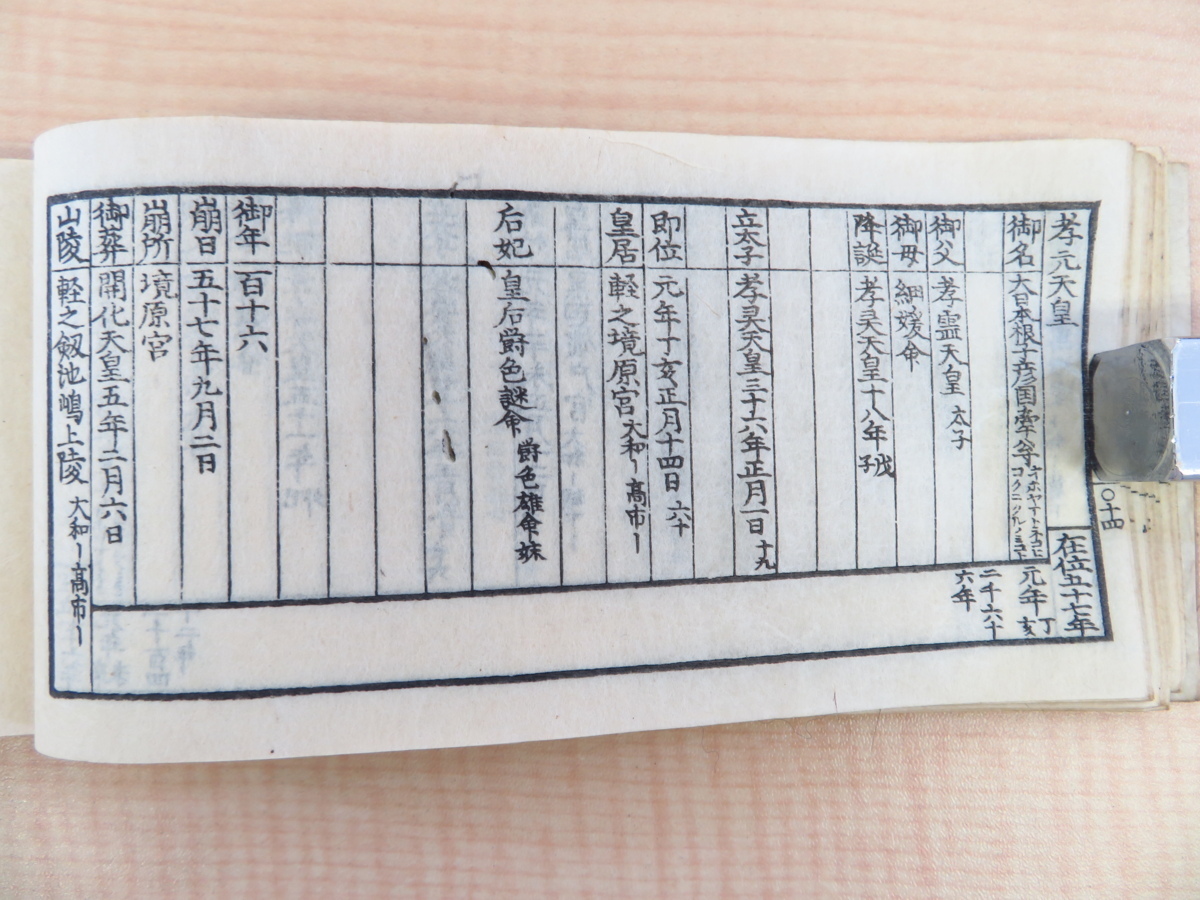 孝元天皇
在位五十七年
御名 大日本根子彦国牽尊
元年丁亥
二千六十六年
御父 孝霊天皇 太子
御母 細媛命
降誕 孝灵天皇十八年 戊子
立太子 孝灵天皇三十六年正月一日 十九
即位 元年丁亥正月十四日 六十
皇居 軽之境原宮 大和ー高市ー
后妃 皇后爵色謎命 爵色雄命妹
御年 百十六
崩日 五十七年九月二日
崩所 境原宮
御葬 開化天皇五年二月六日
山陵 軽之劔池嶋上陵 大和ー高市ー
〇十四